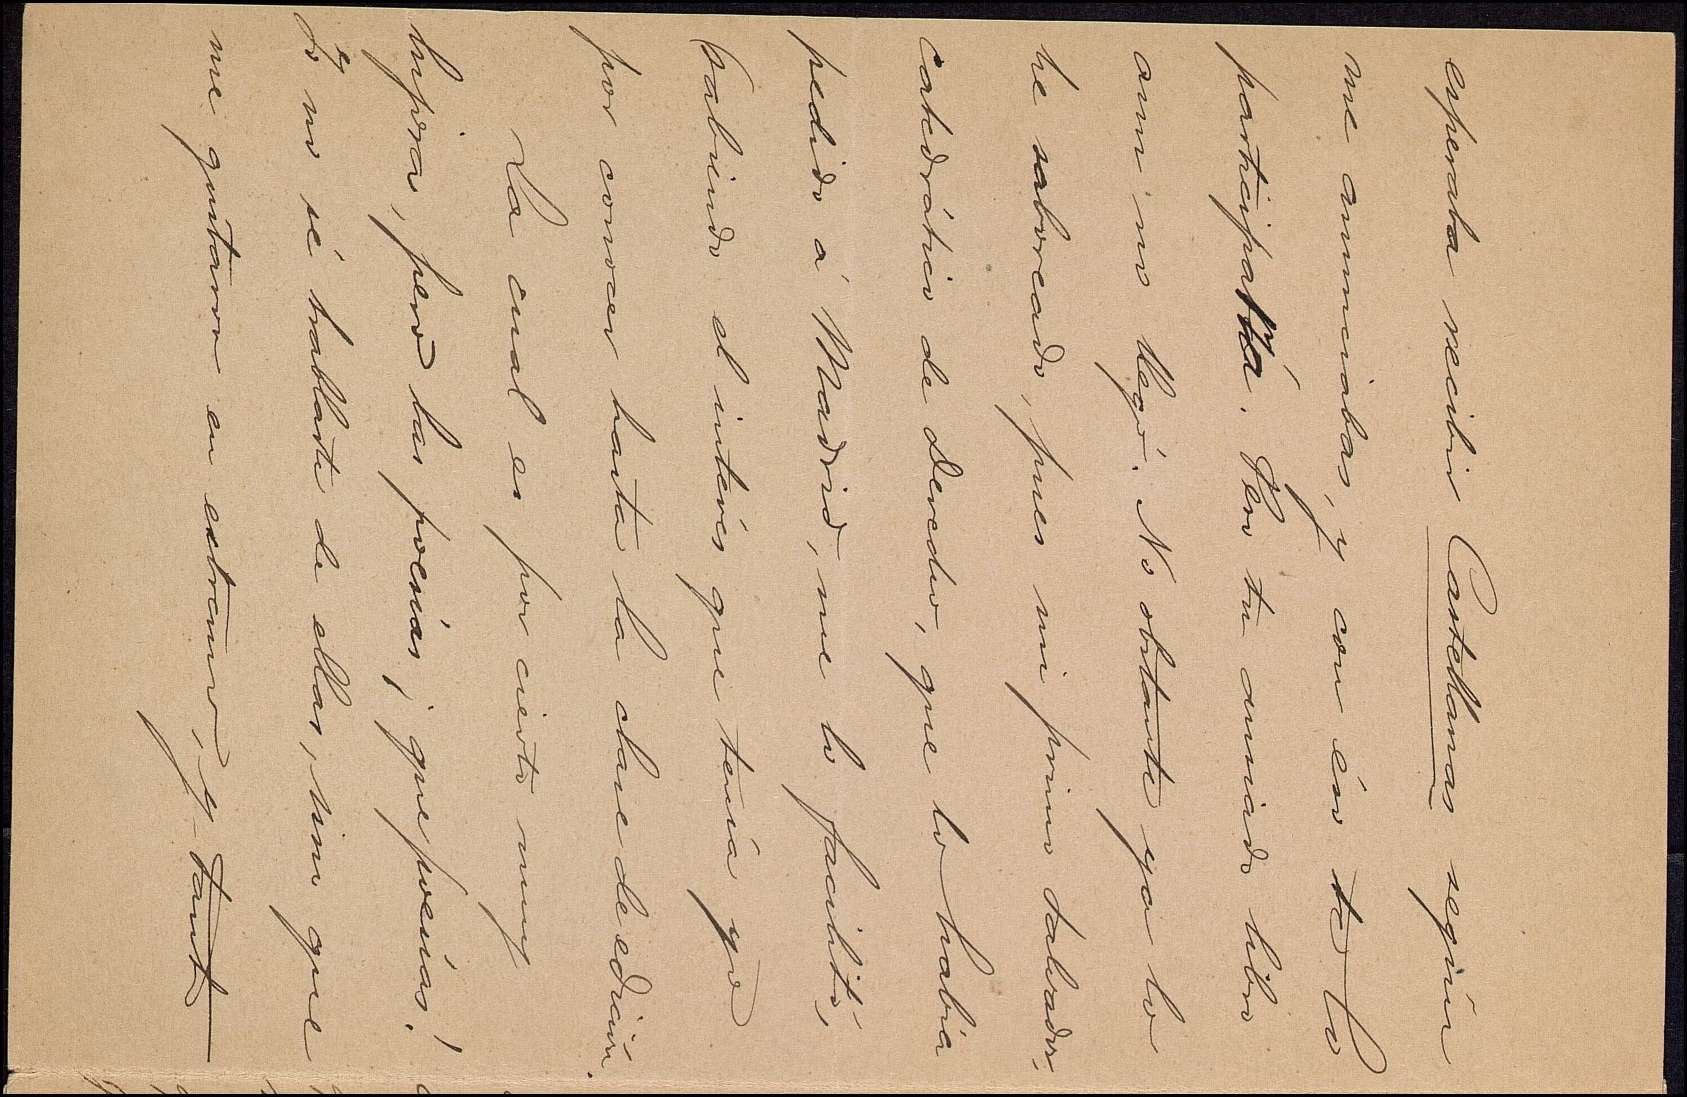 esperaba recibir Castellanas según
me anunciabas, y con éso te lo
participaría. Pero tu ansiado libro
aun no llegó. No obstante ya lo
he saboreado, pues mi primo Salvador,
catedrático de Derecho, que lo había
pedido á Madrid, me lo facilitó,
sabiendo el interés que tenía yo
por conocer hasta la clase de edición.
La cual es por cierto muy
lujosa, pero las poesías; que poesías!
Yo no sé hablarte de ellas, sino que
me gustaron en extremo, y tant